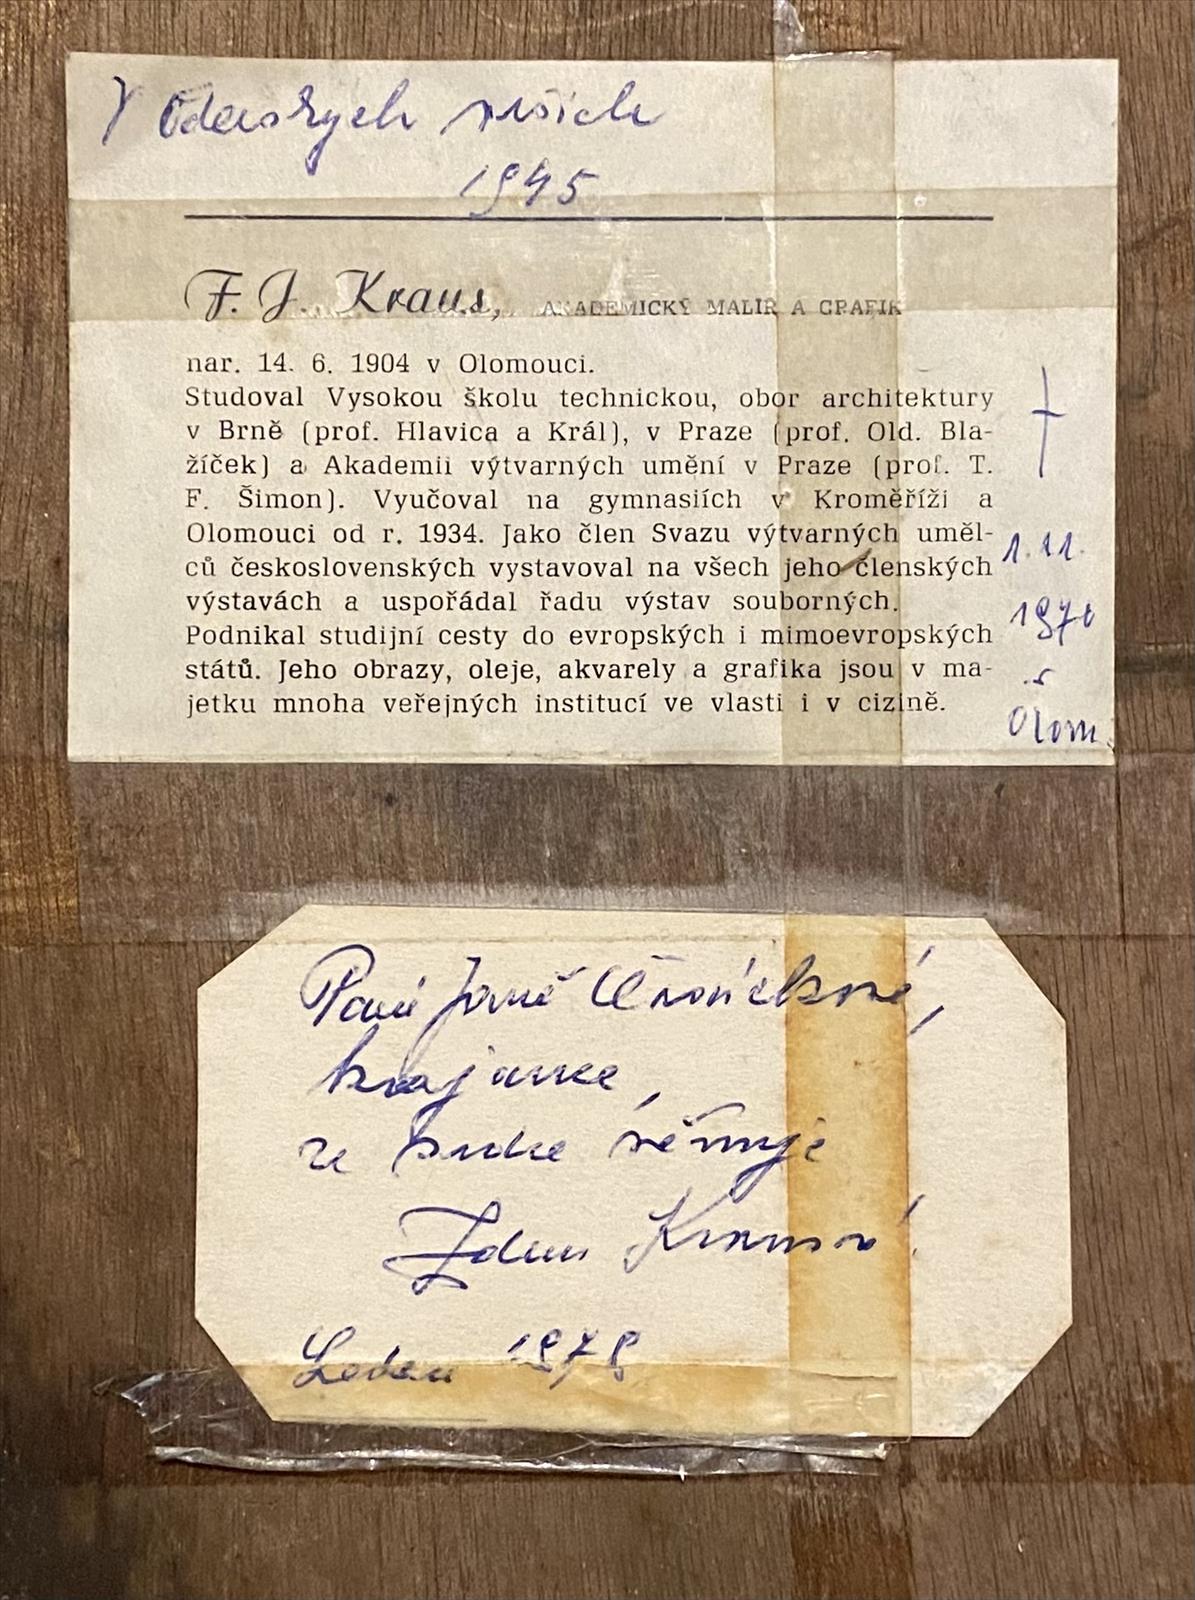 V Oderských vrších
1945
F. J. Kraus, AKADEMICKÝ MALÍŘ A GRAFIK
nar. 14. 6. 1904 v Olomouci.
Studoval Vysokou školu technickou, obor architektury
v Brně (prof. Hlavica a Král), v Praze (prof. Old. Bla-
žíček) a Akademii výtvarných umění v Praze (prof. T.
F. Šimon). Vyučoval na gymnasiích v Kroměříži a
Olomouci od r. 1934. Jako člen Svazu výtvarných uměl-
ců československých vystavoval na všech jeho členských
výstavách a uspořádal řadu výstav souborných.
Podnikal studijní cesty do evropských i mimoevropských
států. Jeho obrazy, oleje, akvarely a grafika jsou v ma-
jetku mnoha veřejných institucí ve vlasti i v cizině.
†
1. 11.
Olom.
Paní Janě
krajance,
ze srdce věnuje
Zdena Krausová.
Leden